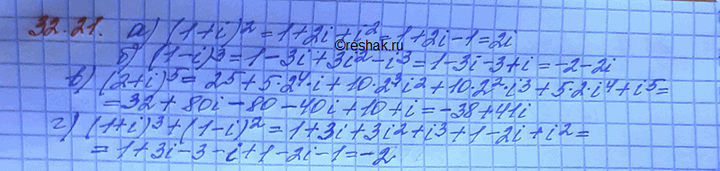 32.21. а) (1+i)² = 1+2i+i² = 1+2i-1=2i
©reshak.ru
б) (1-i)³ = 1-3i+3i²-i³ = 1-3i-3+i=-2-2i
в) (2+i)⁵ = 2⁵+5·2⁴·i+10·2³i²+10·2²·i³+5·2·i⁴+i⁵=
=32+80i-80-40i+10+i=-38+41i
г) (1+i)³+(1-i)² = 1+3i+3i²+i³+1-2i+i²=
= 1+3i-3-i+1-2i-1=-2